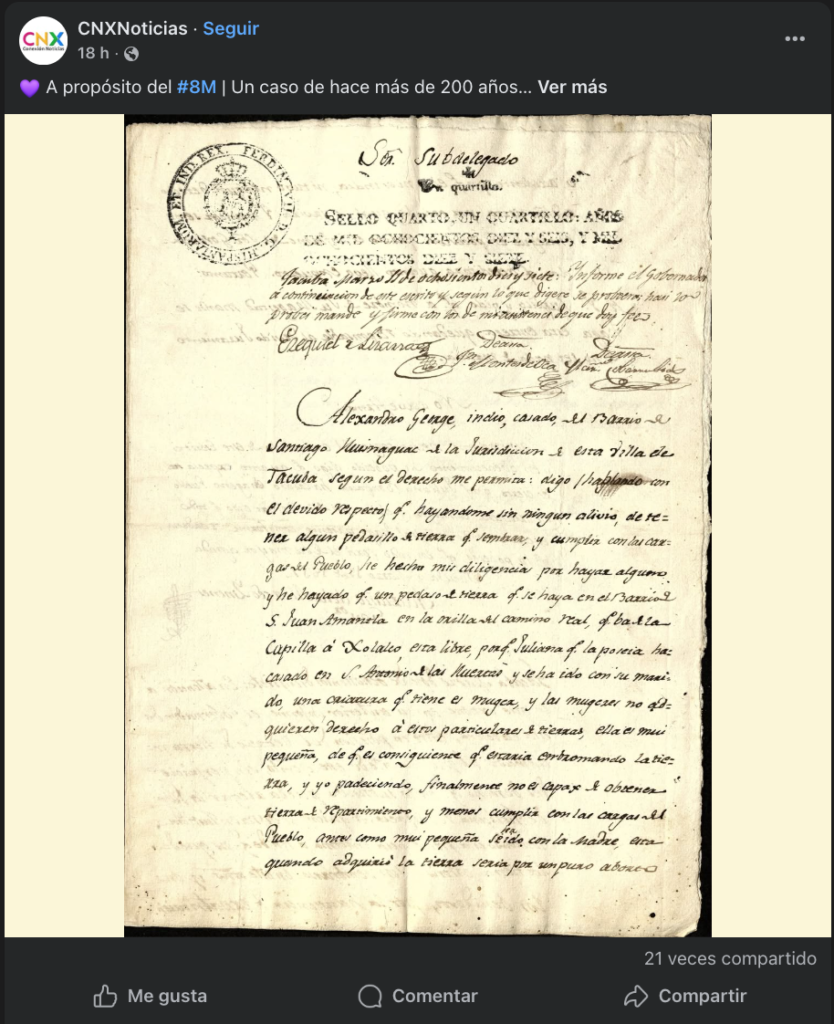 CNXNoticias · Seguir
18 h ·
💜 A propósito del #8M | Un caso de hace más de 200 años... Ver más
CNX
FERDIN. VII. D. G. HISPANIARUM. ET. IND. REX.
Sōr. Subdelegado
Un quartillo.
SELLO QUARTO, UN QUARTILLO: AÑOS
DE MIL OCHOCIENTOS DIEZ Y SEIS, Y MIL
OCHOCIENTOS DIEZ Y SIETE.
Tacuba Marzo 11 de ochosientos dies y siete: Informe el Gobernador
a continuacion de este escrito y segun lo que digere se provera; haci lo
probei mande y firme con los de mi asistencia de que doy fee
Ezequiel Lizarra
Deassa. Deassa.
Montes de Oca
Alexandro George, indio, casado, del Barrio de
Santiago Huimaguac de la Jurisdicion de esta Villa de
Tacuba segun el derecho me permita: digo (hablando con
el devido respecto) q.e hayandome sin ningun alivio, de te=
ner algun pedasillo de tierra q.e sembrar, y cumplir con las car-
gas del Pueblo, he hecho mis diligencia por hayar alguno,
y he hayado q.e un pedaso de tierra q.e se haya en el Barrio de
S. Juan Amanola en la orilla del camino real, q.e ba de la
Capilla á Xolalco, esta libre, porq.e Juliana q.e la poseia ha=
casado en S. Antonio de las Huertas y se ha ido con su mari=
do, una criatura q.e tiene es muger, y las mugeres no ad=
quieren derecho á estos particulares de tierras, ella es mui
pequeña, de q.e es consiguiente q.e estaria entromando la tie=
rra, y yo padeciendo, finalmente no es capax de obtener
tierra de repartimiento, y menos cumplir con las cargas del
Pueblo, antes como mui pequeña se ha ido con la Madre, esta
quando adquirió la tierra seria por un puro
21 veces compartido
Me gusta Comentar Compartir